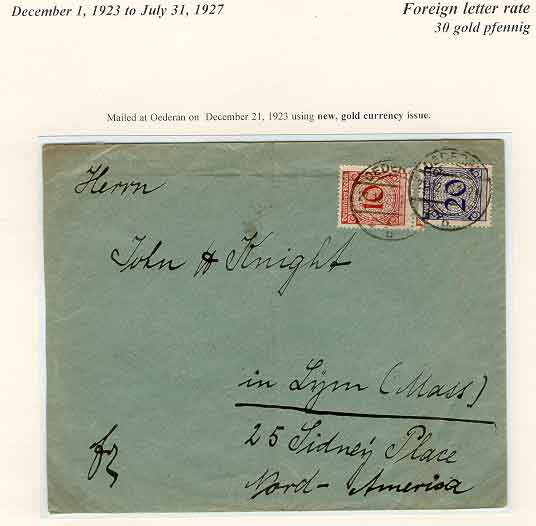 December 1, 1923 to July 31, 1927
Foreign letter rate
30 gold pfennig
Mailed at Oederan on December 21, 1923 using new, gold currency issue.
Deutsches Reich
10
20
b
Herrn
John H Knight
in Lÿnn (Mass)
25 Sidney Place
Nord- Amerika